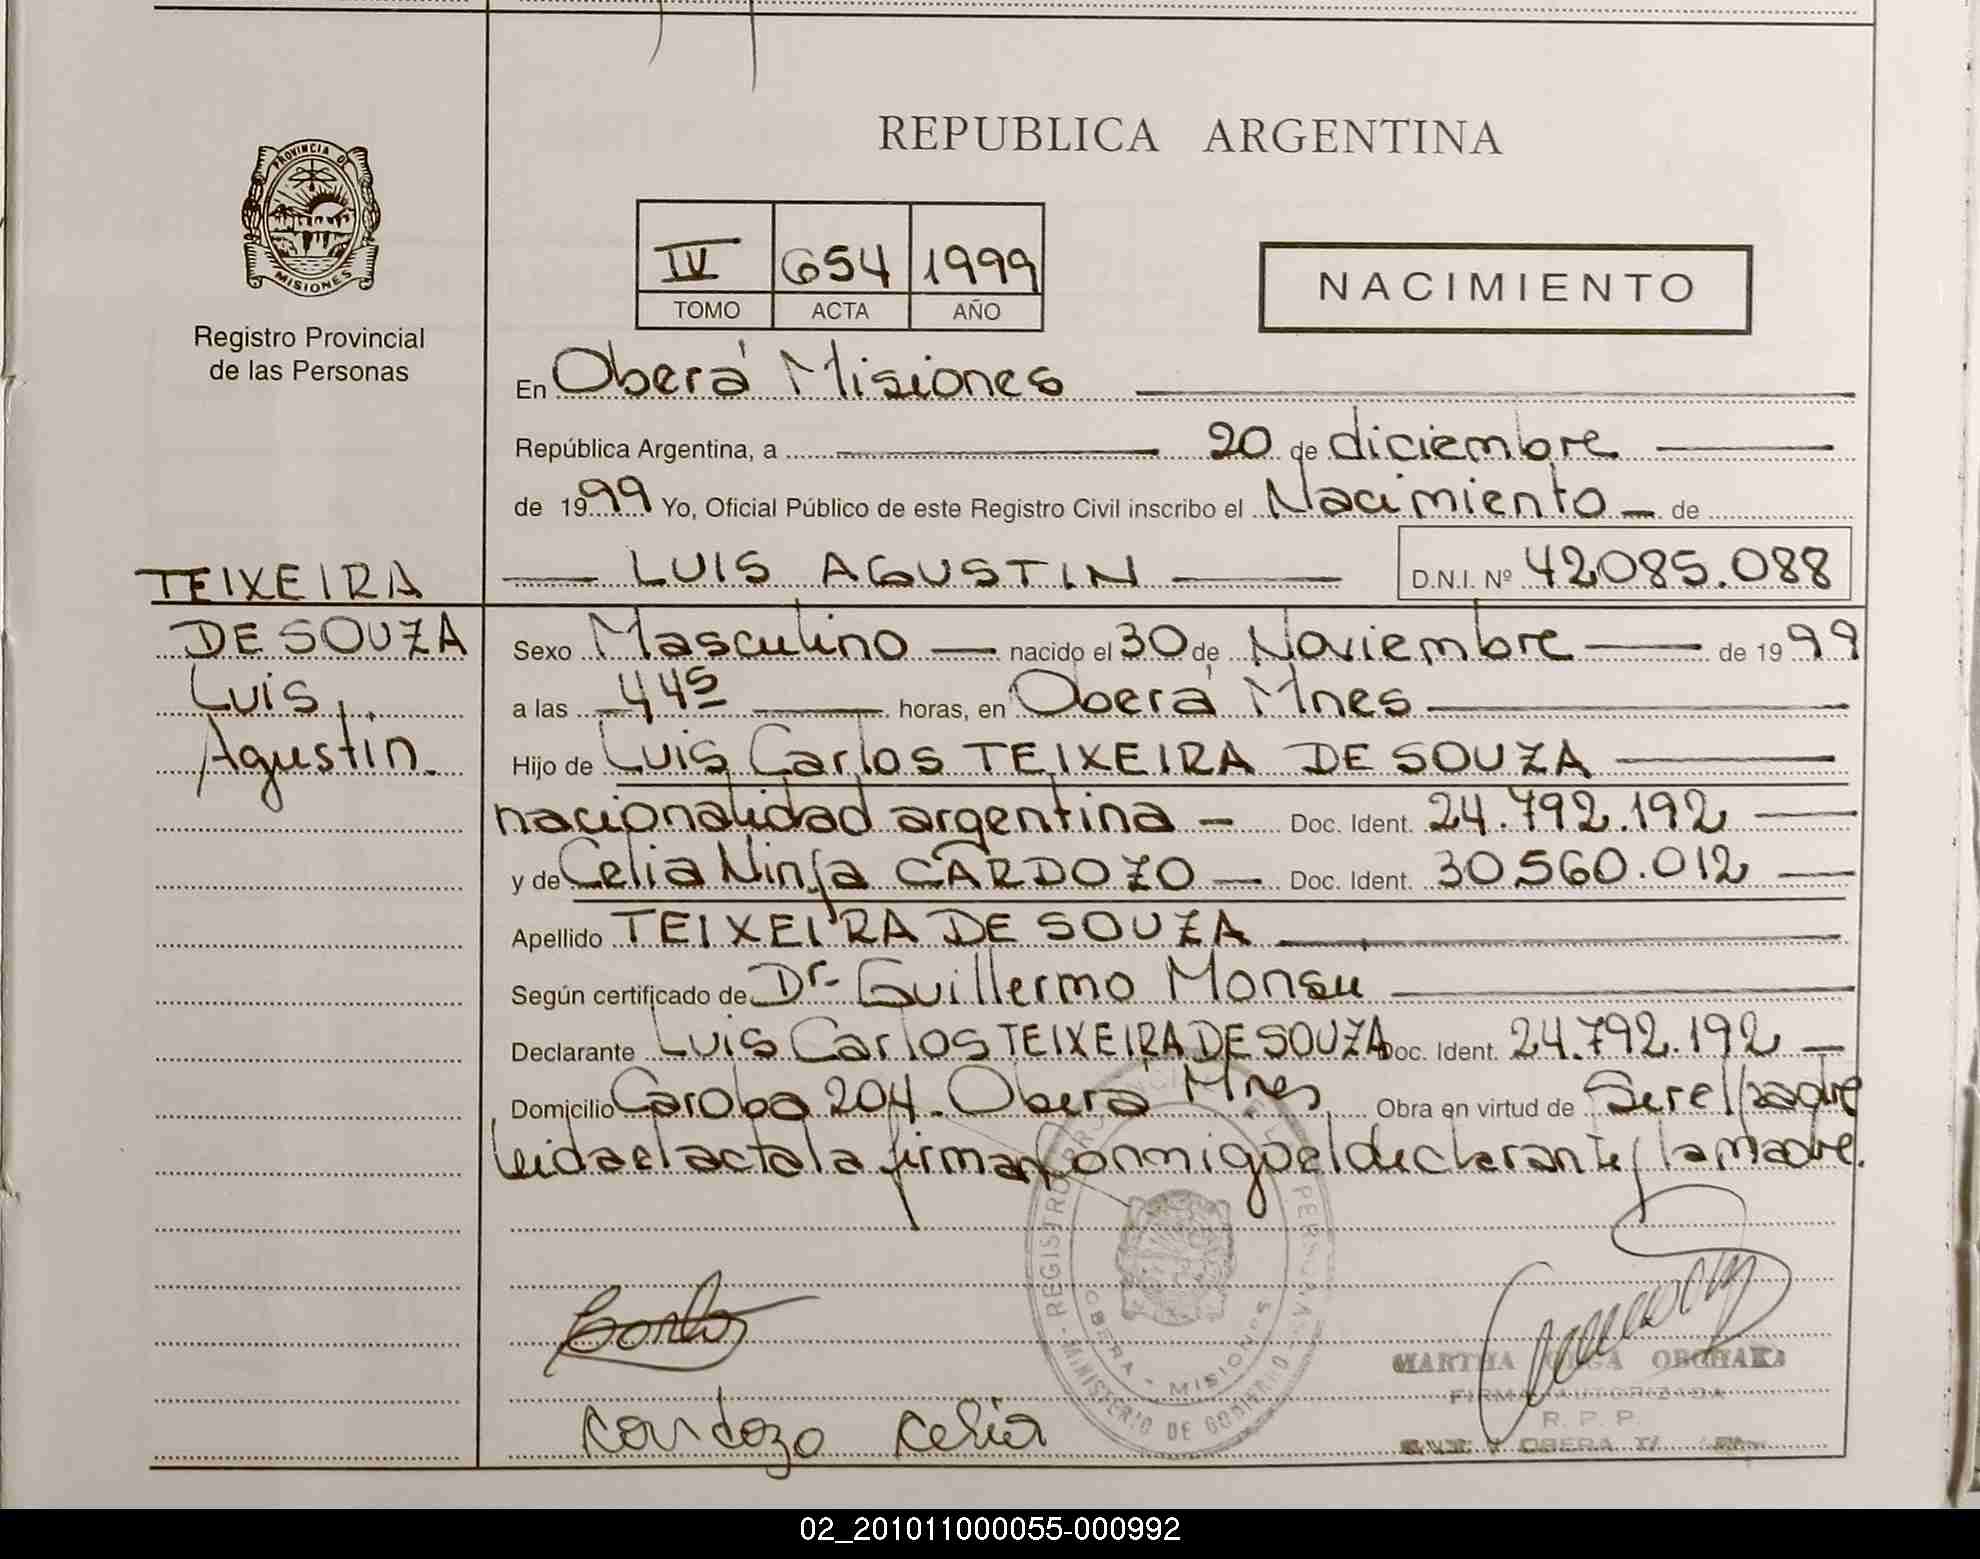 PROVINCIA DE
MISIONES
Registro Provincial
de las Personas
REPUBLICA ARGENTINA
IV 654 1999
TOMO ACTA AÑO
NACIMIENTO
En Oberá Misiones
República Argentina, a 20 de diciembre
de 1999 Yo, Oficial Público de este Registro Civil inscribo el Nacimiento de
LUIS AGUSTIN D.N.I. Nº 42085.088
TEIXEIRA
DE SOUZA
Luis
Agustin.
Sexo Masculino nacido el 30 de Noviembre de 1999
a las 445 horas, en Oberá Mnes
Hijo de Luis Carlos TEIXEIRA DE SOUZA
nacionalidad argentina Doc. Ident. 24.792.192
y de Celia Ninfa CARDOZO Doc. Ident. 30.560.012
Apellido TEIXEIRA DE SOUZA
Según certificado de Dr. Guillermo Monsu
Declarante Luis Carlos TEIXEIRA DE SOUZA Doc. Ident. 24.792.192
Domicilio Caroba 204. Oberá Mnes Obra en virtud de Ser el padre
leida el acta la firman conmigo el declarante y la madre.
REGISTRO PROVINCIAL DE LAS PERSONAS
MINISTERIO DE GOBIERNO
OBERA - MISIONES
MARTHA OLGA
FIRMA AUTORIZADA
R. P. P.
OBERA
Cardozo Celia
02_201011000055-000992